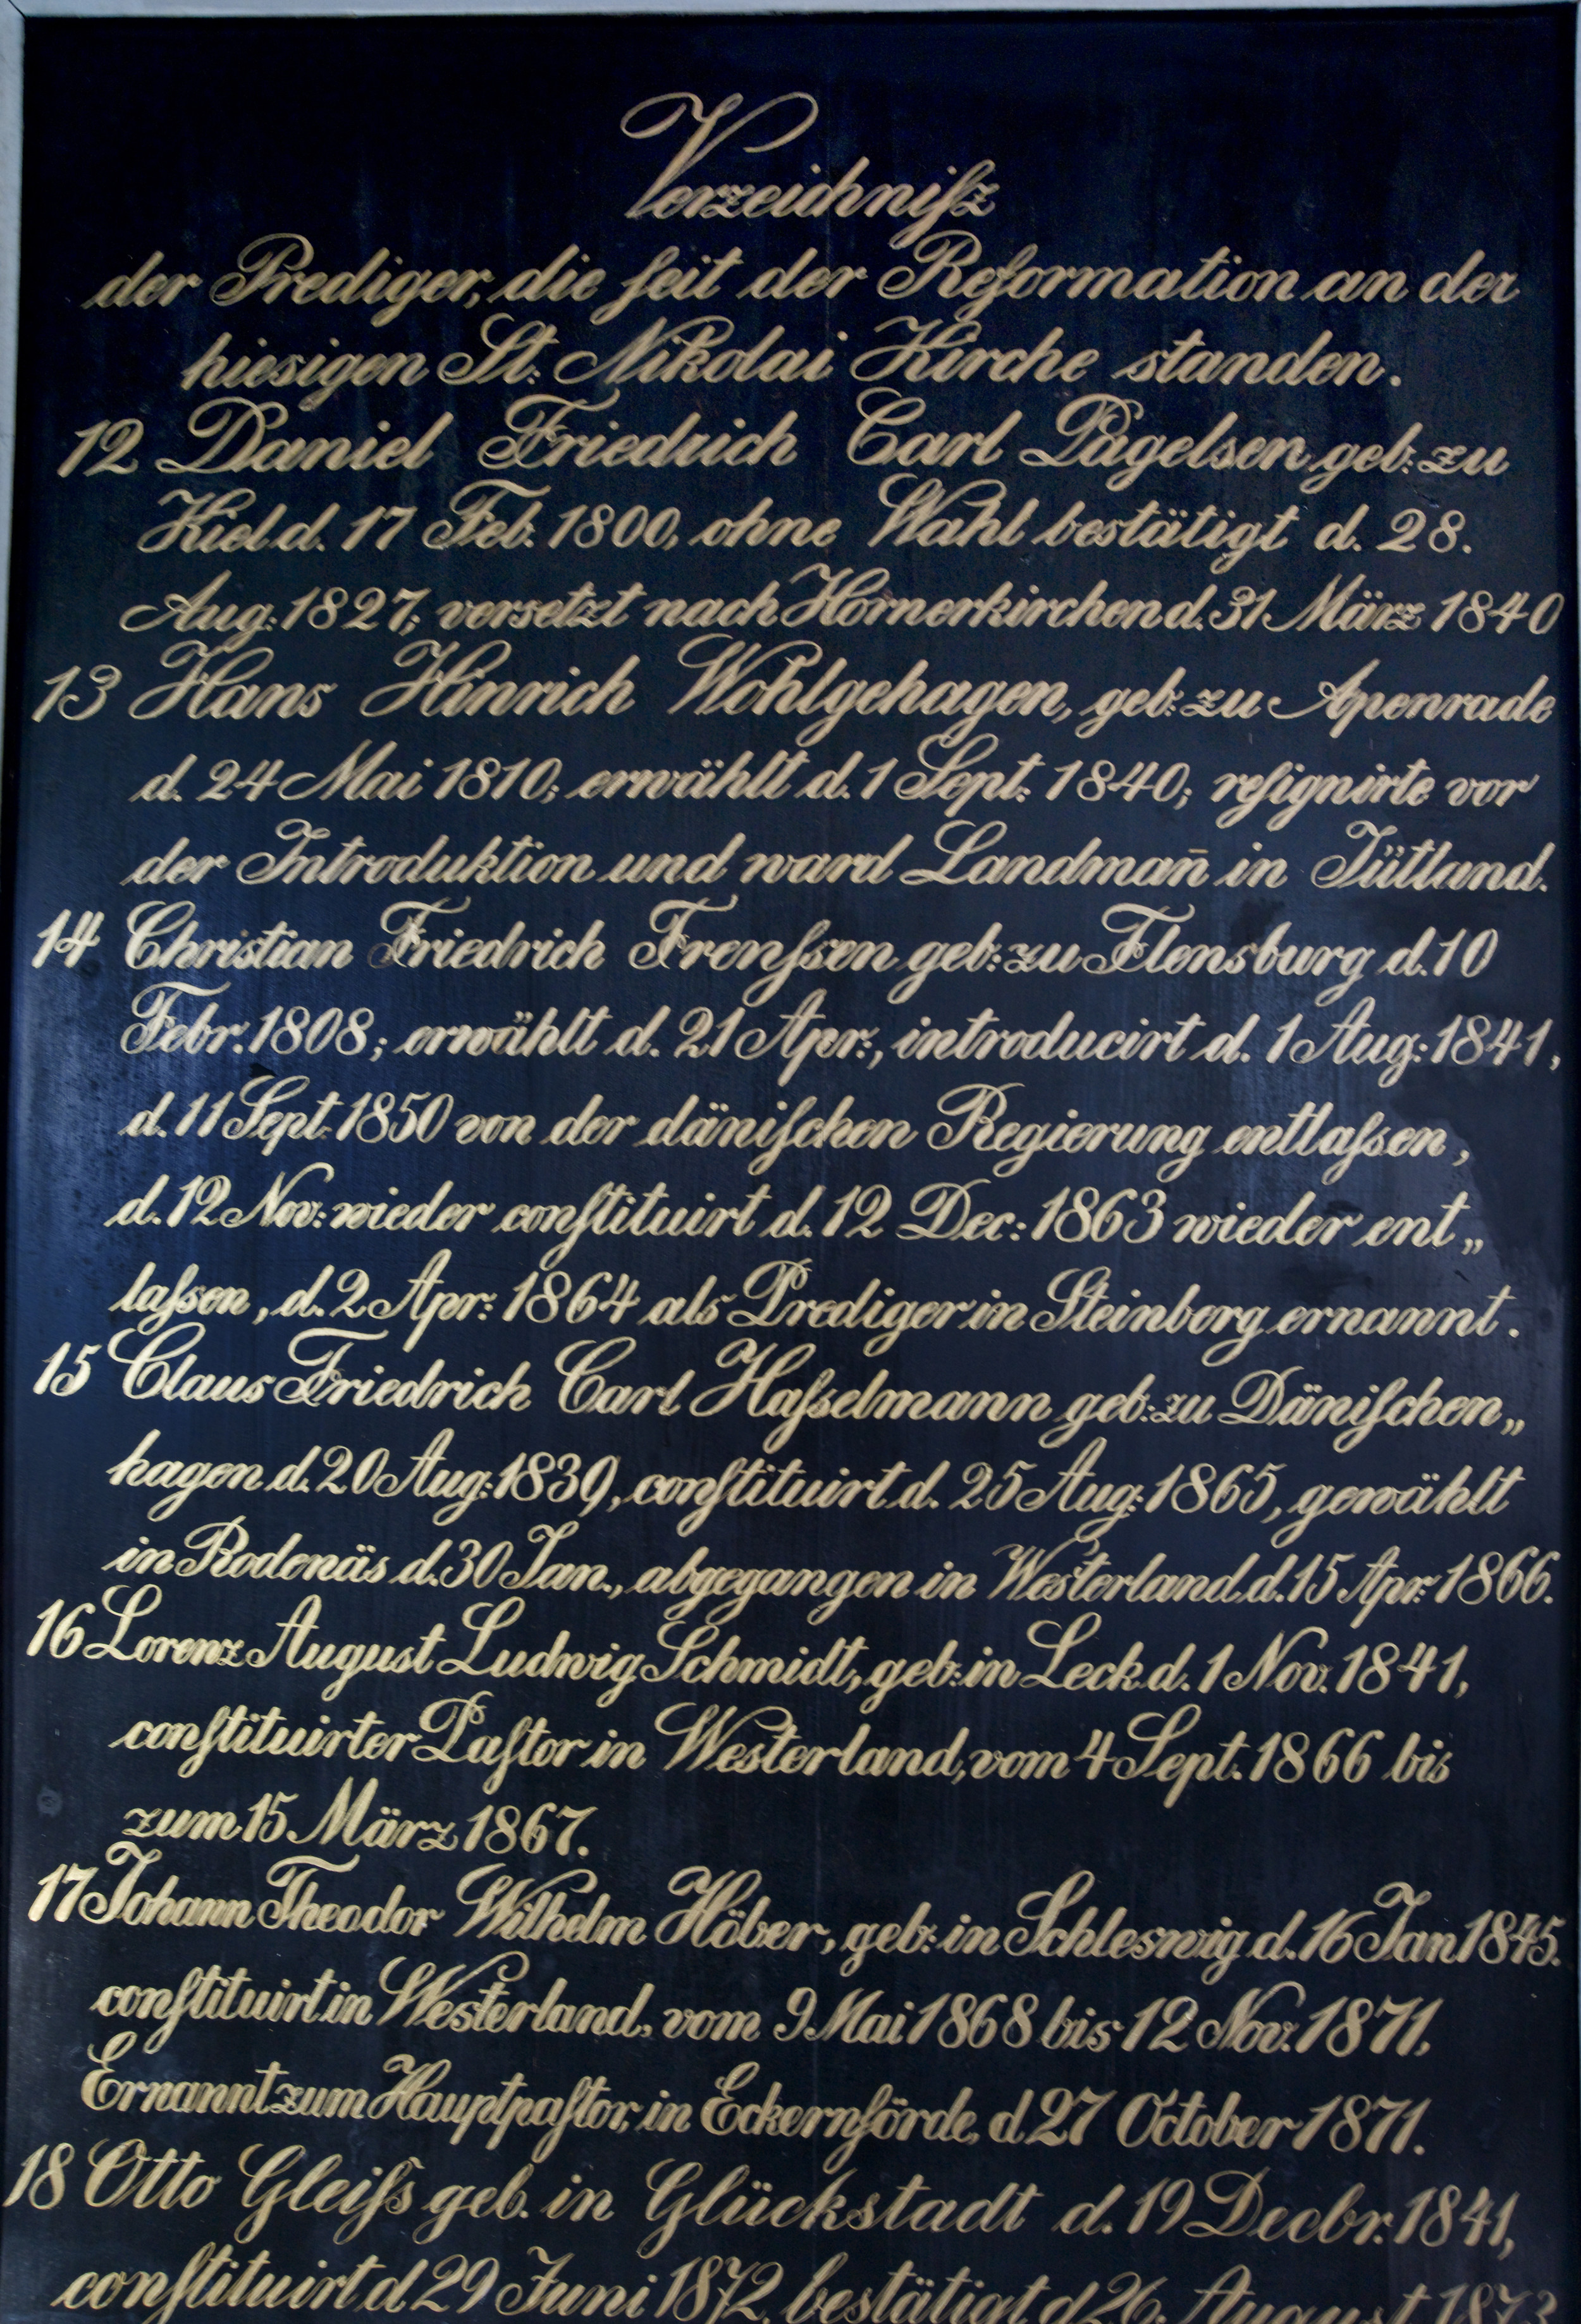 Verzeichniſz
der Prediger, die ſeit der Reformation an der
hiesigen St: Nikolai Kirche standen.
12 Daniel Friedrich Carl Pagelsen geb: zu
Kiel d. 17 Feb: 1800, ohne Wahl bestätigt d. 28.
Aug: 1827; versetzt nach Hörnerkirchen d. 31 März 1840
13 Hans Hinrich Wohlgehagen, geb: zu Apenrade
d. 24 Mai 1810; erwählt d. 1 Sept: 1840; reſignirte vor
der Introduktion und ward Landman̄ in Jütland.
14 Christian Friedrich Frenſsen geb: zu Flensburg d. 10
Febr. 1808; erwählt d. 21 Apr:, introducirt d. 1 Aug: 1841,
d. 11 Sept 1850 von der däniſchen Regierung entlaſsen,
d. 12 Nov: wieder conſtituirt d. 12 Dec: 1863 wieder ent„
laſsen, d. 2 Apr: 1864 als Prediger in Steinberg ernannt.
15 Claus Friedrich Carl Haſselmann geb: zu Däniſchen„
hagen d. 20 Aug: 1839, conſtituirt d. 25 Aug: 1865, gewählt
in Rodenäs d. 30 Jan., abgegangen in Westerland d. 15 Apr: 1866.
16 Lorenz August Ludwig Schmidt, geb: in Leck d. 1 Nov. 1841,
conſtituirter Paſtor in Westerland, vom 4 Sept. 1866 bis
zum 15 März 1867.
17 Johann Theodor Wilhelm Höber, geb: in Schleswig d. 16 Jan 1845.
conſtituirt in Westerland, vom 9 Mai 1868 bis 12 Nov. 1871.
Ernannt zum Hauptpaſtor, in Eckernförde, d 27 October 1871.
18 Otto Gleiſs geb. in Glückstadt d. 19 Decbr. 1841,
conſtituirt d 29 Juni 1872, bestätigt d 26. August